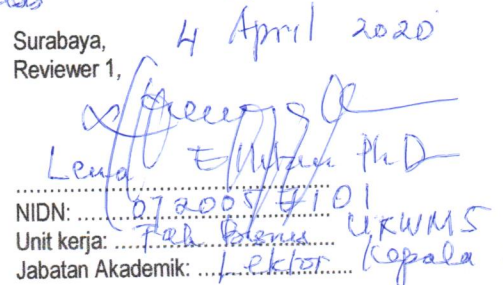 Surabaya, 4 April 2020
Reviewer 1,
Lena Ellitan Ph.D
NIDN:
Unit kerja: Fak Bisnis UKWMS
Jabatan Akademik: Lektor Kepala